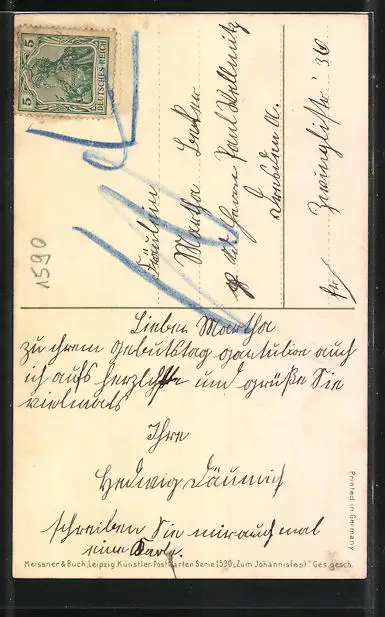 5 DEUTSCHES REICH 5
1590
Fräulein
Martha
p. adr. Herrn Paul Kollmitz
Dresden A.
Zwinglistr. 36
Lieber Martha
zu ihrem Geburtstag gratuliere auch
ich aufs herzlichste und grüße Sie
vielmals
Ihre
Hedwig Däumich
schreiben Sie mir auch mal
eine Karte.
Printed in Germany
Meissner & Buch, Leipzig. Künstler-Postkarten Serie 1590 „Zum Johannisfest" Ges. gesch.